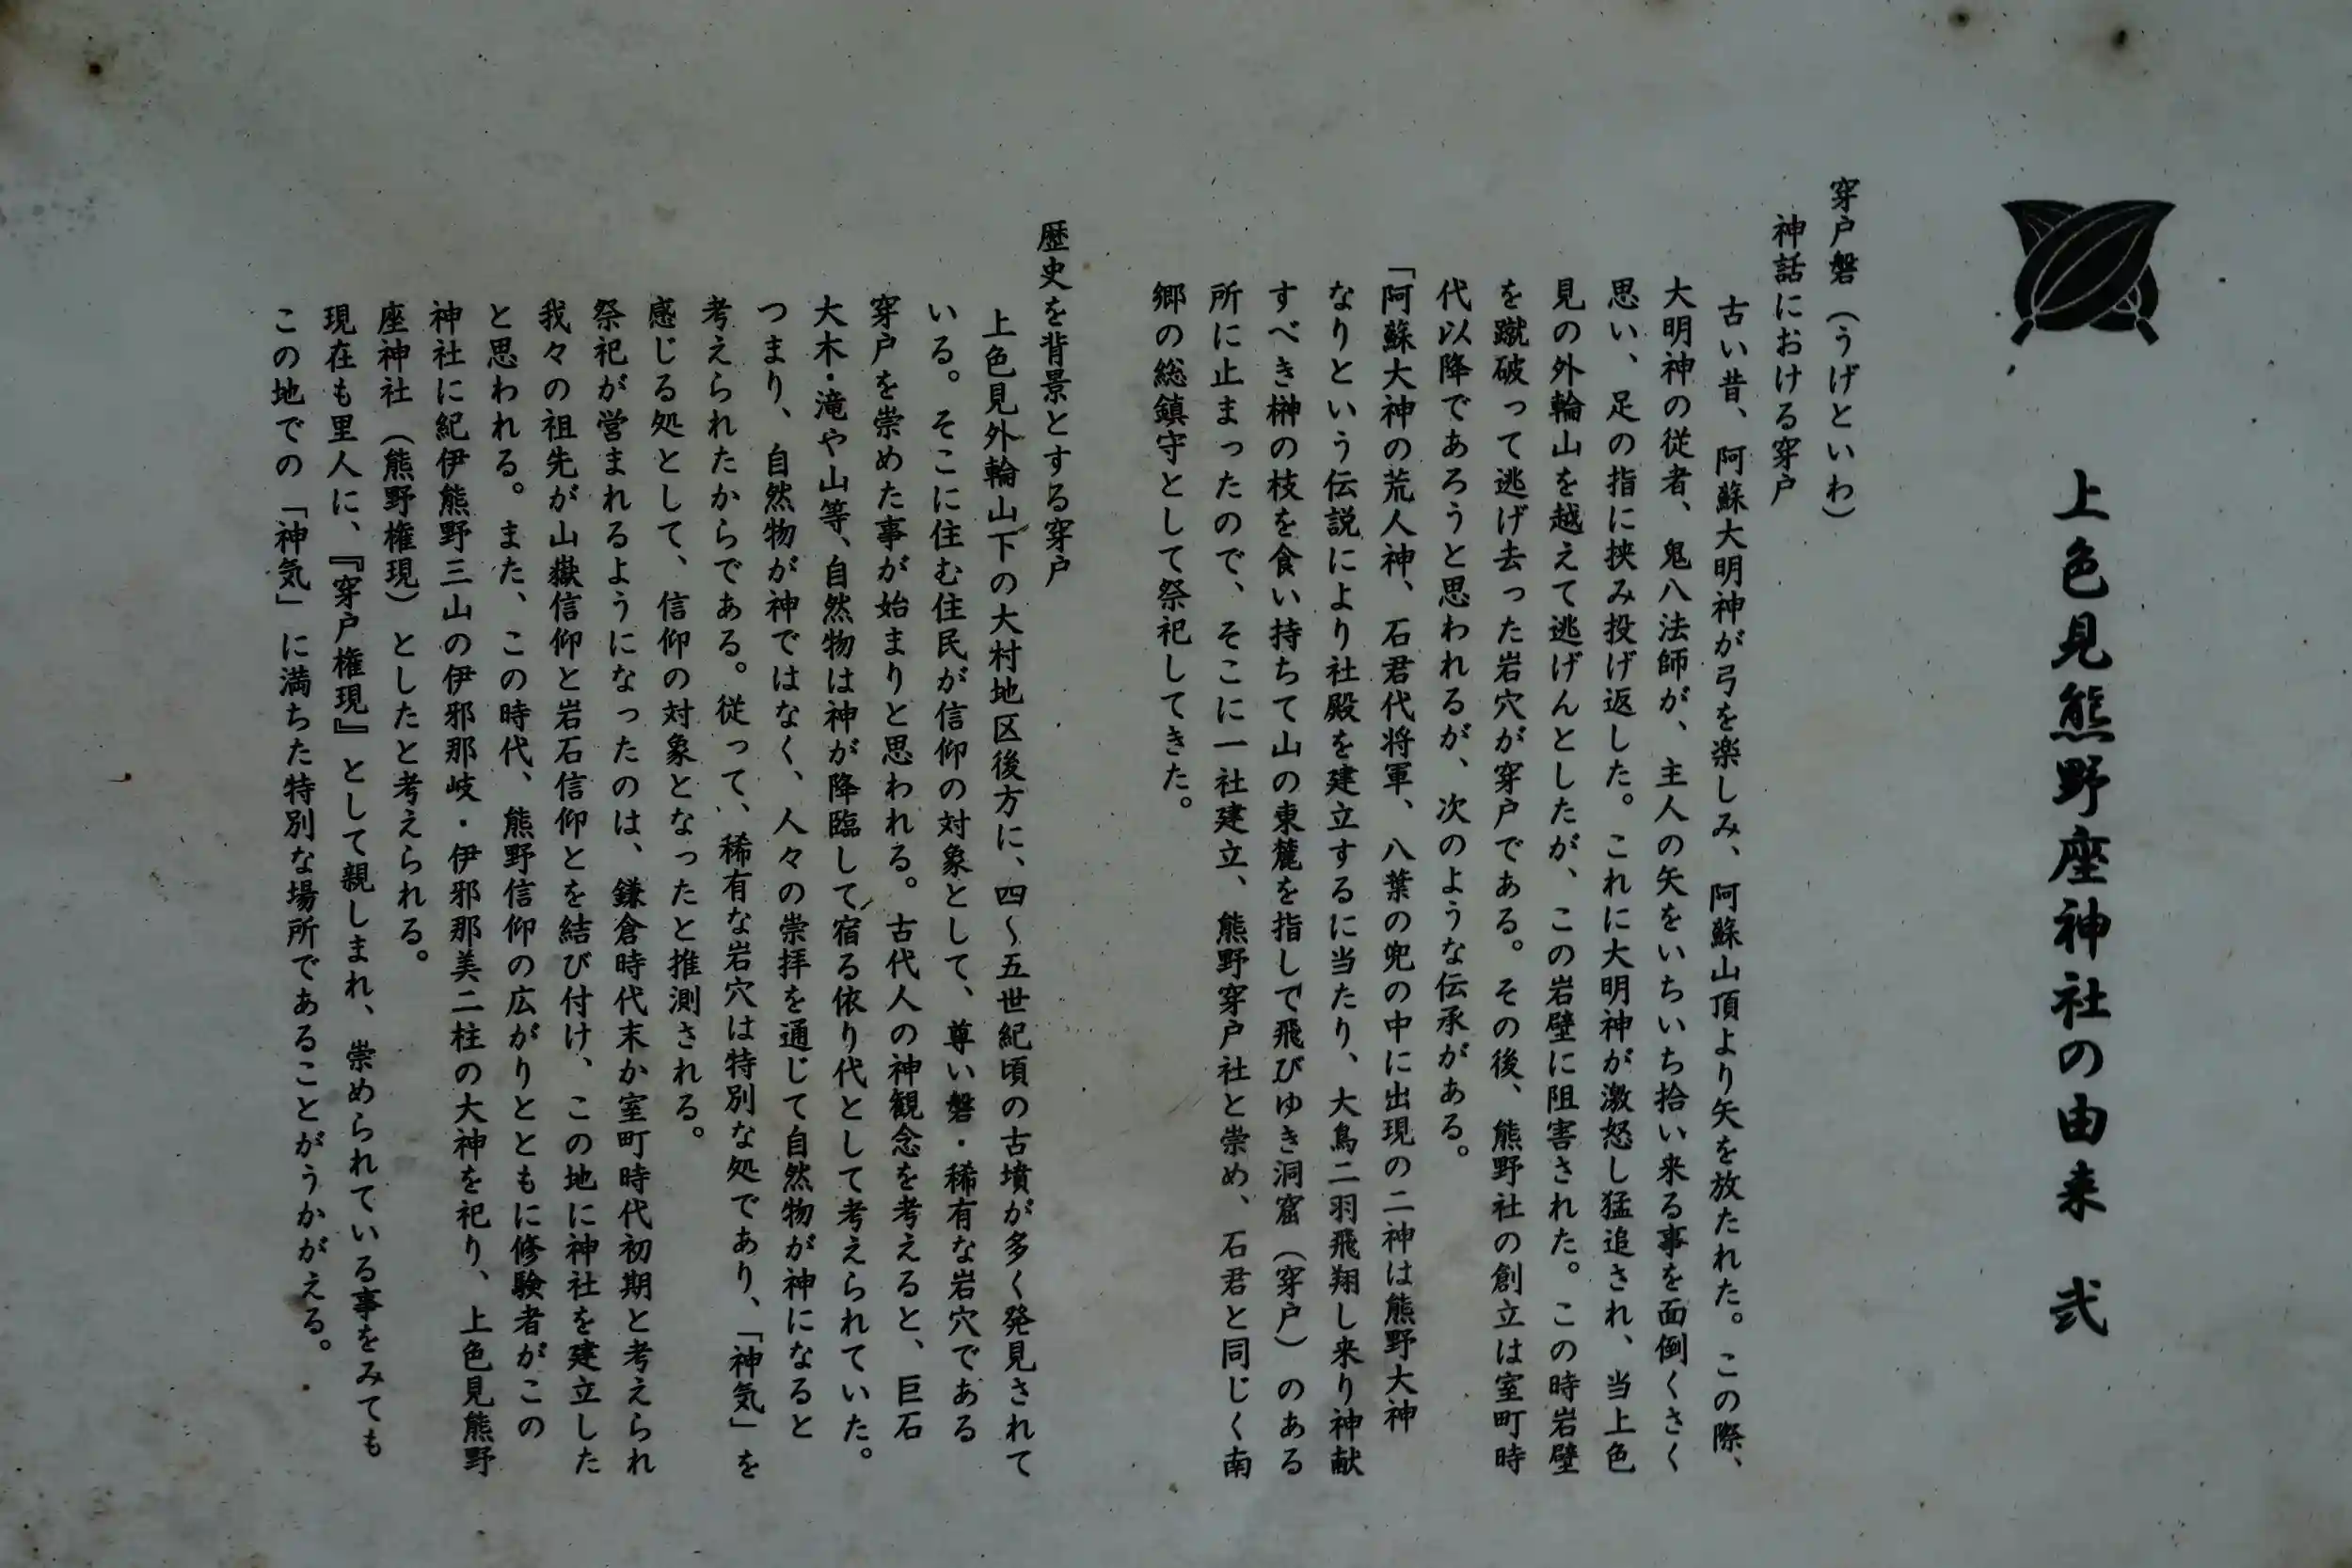 上色見熊野座神社の由来 弐
穿戸磐（うげといわ）
神話における穿戸
古い昔、阿蘇大明神が弓を楽しみ、阿蘇山頂より矢を放たれた。この際、
大明神の従者、鬼八法師が、主人の矢をいちいち拾い来る事を面倒くさく
思い、足の指に挟み投げ返した。これに大明神が激怒し猛追され、当上色
見の外輪山を越えて逃げんとしたが、この岩壁に阻害された。この時岩壁
を蹴破って逃げ去った岩穴が穿戸である。その後、熊野社の創立は室町時
代以降であろうと思われるが、次のような伝承がある。
「阿蘇大神の荒人神、石君代将軍、八葉の兜の中に出現の二神は熊野大神
なりという伝説により社殿を建立するに当たり、大鳥二羽飛翔し来り神献
すべき榊の枝を食い持ちて山の東麓を指して飛びゆき洞窟（穿戸）のある
所に止まったので、そこに一社建立、熊野穿戸社と崇め、石君と同じく南
郷の総鎮守として祭祀してきた。
歴史を背景とする穿戸
上色見外輪山下の大村地区後方に、四〜五世紀頃の古墳が多く発見されて
いる。そこに住む住民が信仰の対象として、尊い磐・稀有な岩穴である
穿戸を崇めた事が始まりと思われる。古代人の神観念を考えると、巨石
大木・滝や山等、自然物は神が降臨して宿る依り代として考えられていた。
つまり、自然物が神ではなく、人々の崇拝を通じて自然物が神になると
考えられたからである。従って、稀有な岩穴は特別な処であり、「神気」を
感じる処として、信仰の対象となったと推測される。
祭祀が営まれるようになったのは、鎌倉時代末か室町時代初期と考えられ
我々の祖先が山嶽信仰と岩石信仰とを結び付け、この地に神社を建立した
と思われる。また、この時代、熊野信仰の広がりとともに修験者がこの
神社に紀伊熊野三山の伊邪那岐・伊邪那美二柱の大神を祀り、上色見熊野
座神社（熊野権現）としたと考えられる。
現在も里人に、『穿戸権現』として親しまれ、崇められている事をみても
この地での「神気」に満ちた特別な場所であることがうかがえる。